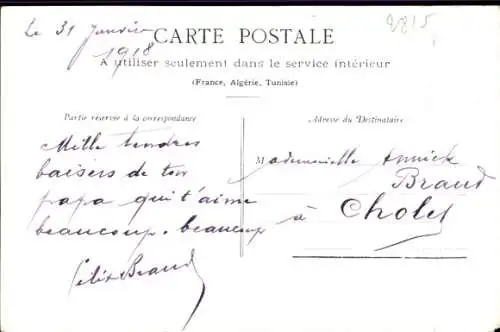 Le 31 Janvier
1918
2215
CARTE POSTALE
A utiliser seulement dans le service intérieur
(France, Algérie, Tunisie)
Partie réservée à la correspondance
Mille tendres
baisers de ton
papa qui t'aime
beaucoup. beaucoup
Félix Braud
Adresse du Destinataire
Mademoiselle Annick
Braud
à Cholet